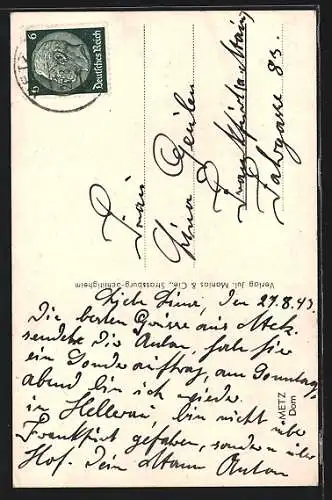 6 Deutsches Reich 6
Frau
Lina Geulen
Frankfurt a/Main
Fahrgasse 83.
Verlag Jul. Manias & Cie., Strassburg-Schiltigheim
METZ
Dom
Liebe Lina, den 27.8.43.
Die besten Grüsse aus Metz
sendet Dir Anton, habe hier
ein Sonderauftrag, am Sonntag
abend bin ich wieder
in Hellerau, bin nicht über
Frankfurt gefahren, sondern über
Hof. Dein Mann Anton